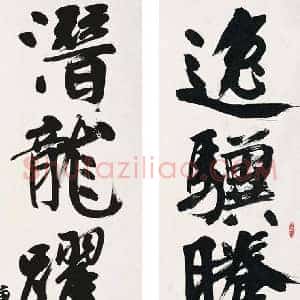 逸驥騰
潛龍躍
Shufaziliao.COM